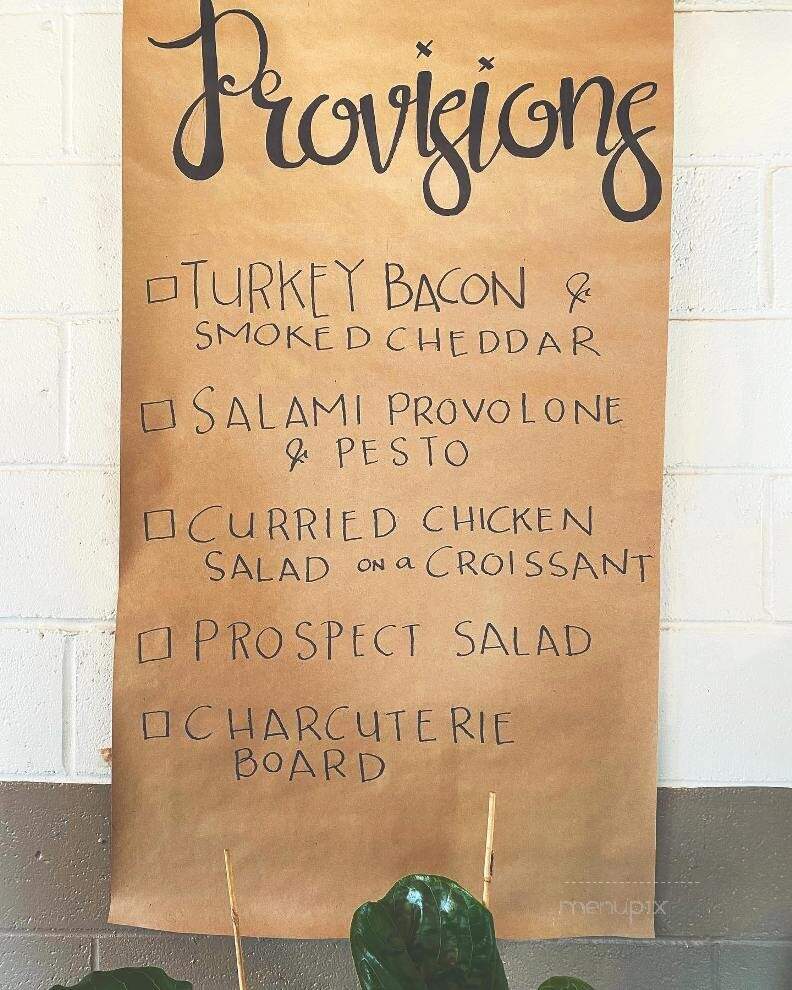 Provisions
TURKEY BACON &
SMOKED CHEDDAR
SALAMI PROVOLONE
& PESTO
CURRIED CHICKEN
SALAD ON a CROISSANT
PROSPECT SALAD
CHARCUTERIE
BOARD
menupix